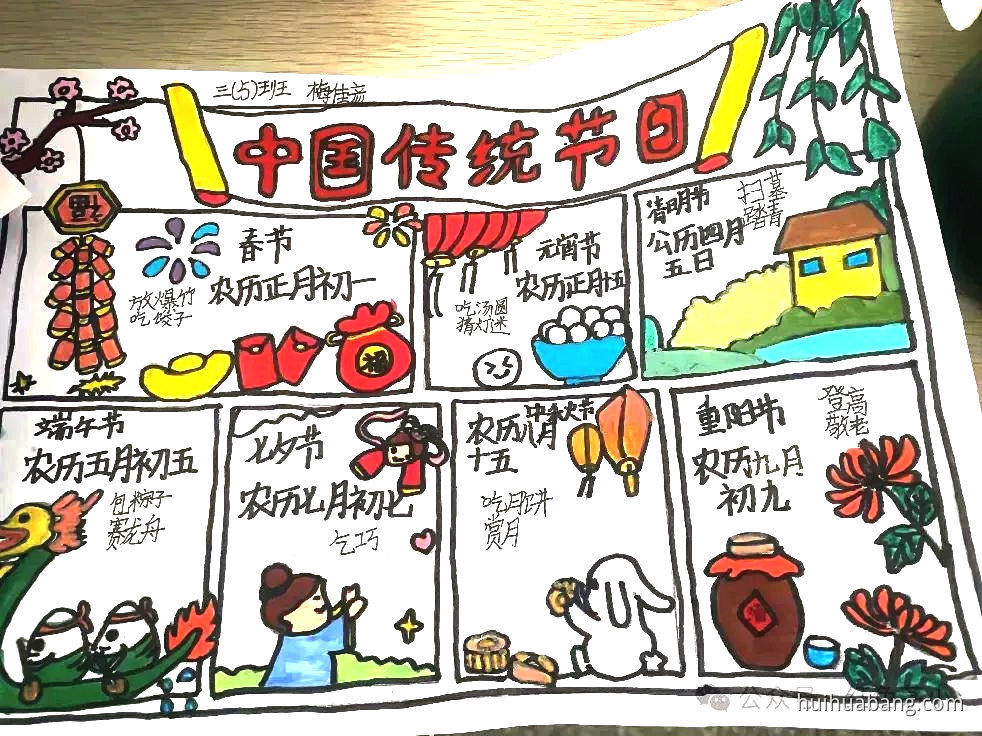 三(5)班 梅佳彦
中国传统节日
福
春节
农历正月初一
放爆竹
吃饺子
福
元宵节
农历正月十五
吃汤圆
猜灯迷
清明节
公历四月
五日
扫墓
踏青
端午节
农历五月初五
包粽子
赛龙舟
七夕节
农历七月初七
乞巧
中秋节
农历八月
十五
吃月饼
赏月
重阳节
农历九月
初九
登高
敬老
公众号
huihuabang.com